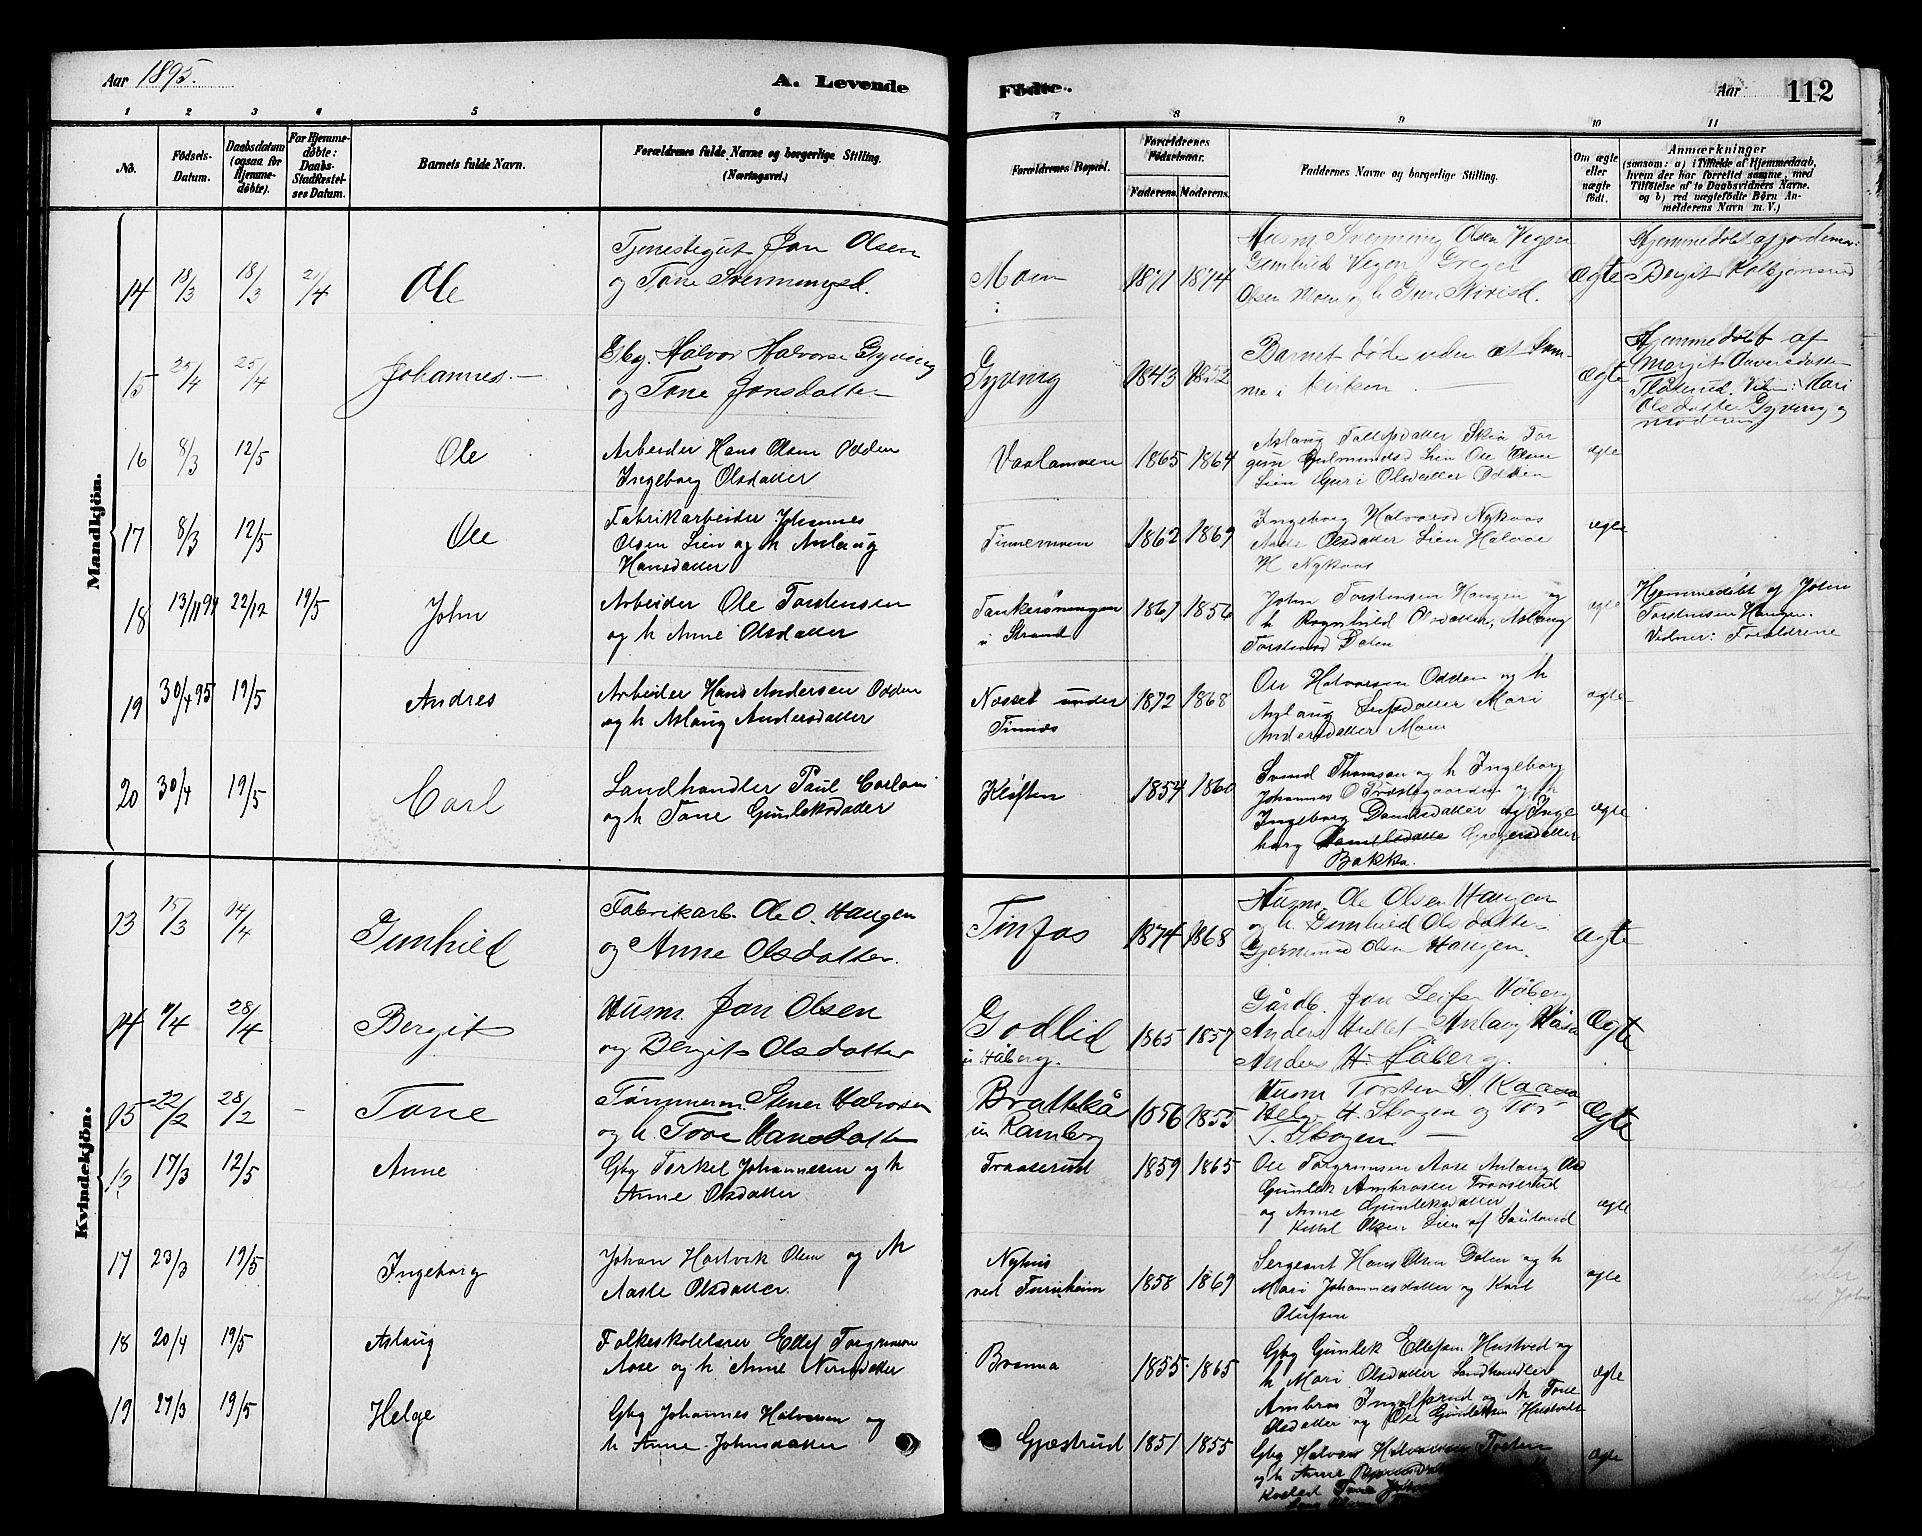 Aar 1895.
A. Levende
Fødte.
Aar
112
1 2 3 4 5 6 7 8 9 10 11
No.
Fødsels-
Datum.
Daabsdatum
(ogsaa for
Hjemme-
døbte).
For Hjemme-
døbte:
Daabs-
Stadfæstel-
ses Datum.
Barnets fulde Navn.
Forældrenes fulde Navne og borgerlige Stilling.
(Næringsvei.)
Forældrenes Bopæl.
Forældrenes
Fødselsaar.
Faderens. Moderens.
Faddernes Navne og borgerlige Stilling.
Om ægte
eller
uægte
født.
Anmærkninger
(saasom: a) i Tilfælde af Hjemmedaab,
hvem der har forrettet samme, med
Tilføielse af to Daabsvidners Navne,
og b) ved uægtefødte Børn An-
melderens Navn m. V.)
Mandkjön.
14 18/3 18/3 21/4 Ole
Tjenestegut Jon Olsen
og Tone
Moen
1871 1874
Olsen Moen og h
Ægte
Hjemmedøbt af jordemor:
Bergit
15 25/4 25/4 Johannes. —
Gbg. Halvor Halvorse Gyving
og Tone Jonsdatter
Gyving
1843 1852
Barnet døde uden at kom-
me i kirken
Ægte
Hjemmedøbt af
Margit
Vidn: Mari
Olsdatter Gyving og
moderen
16 8/3 12/5 Ole
Arbeider Hans Olsen Odden
Ingeborg Olsdatter
1865 1864
Aslaug Tollefsdatter Skie Tor
Lien Ole Olsen
Lien Guri Olsdatter Odden
ægte
17 8/3 12/5 Ole
Fabrikarbeider Johannes
Olsen Lien og h Aslaug
Hansdatter
Tinnemoen
1862 1869
Ingeborg Halvorsd Nykaas
Aase Olsdatter Lien Halvor
H Nykaas
ægte
18 13/11 94 22/12 19/5 John
Arbeider Ole Torstensen
og h Anne Olsdatter
u Strand
1861 1856
John Torstensen Haugen og
h Ragnhild Olsdatter, Aslaug
Torstensd Dalen
ægte
Hjemmedöbt af John
Torstensen Haugen.
Vidner: Forældrene
19 30/4 95 19/5 Andres
Arbeider Hans Andersen Odden
og h Aslaug Andersdatter
Næsset under
Tinnæs
1872 1868
Ole Halvorsen Odden og h
Aslaug Leifsdatter Mari
Andersdatter Moen
ægte
20 30/4 19/5 Carl
Landhandler Paul Carlsen
og h Tone Gunleksdatter
Kløften
1854 1860
Svend Thomsen og h Ingeborg
Johannes O Præstegaarden og h
Ingeborg og Inge
borg Gregersdatter
Bakka.
ægte
Kvindekjön.
13 15/3 14/4 Gunhild
Fabrikarb. Ole O. Haugen
og Anne Olsdatter.
Tinfos
1874 1868
Husm. Ole Olsen Haugen
og h. Gunhild Olsdatter
Gjermund Olsen Haugen.
Ægte
14 28/4 Bergit
Husm. Jon Olsen
og Bergit Olsdatter
Godlid
u Håberg.
1865 1857
Gårdb. Jon Leifsen Håberg
Anders Aslaug
Anders H. Håberg.
Ægte
15 22/2 28/2 - Tone
Tømmerm. Stener Halvorsen
og h. Tone Hansdatter
Brattekås
u Ramberg
1856 1855
Husm Torsten
Helge H. Skogen og Tor
Skogen —
Ægte
17/3 12/5 Anne
Gbg Torkel Johannesen og h
Anne Olsdatter
Traaserud
1859 1865
Ole Torgrimsen Aase Aslaug Olsd
Gunlek Ambrosen Traaserud
og Anne Gunleksdatter
Kittel Olsen Lien af Sauland
ægte
17 23/3 19/5 Ingeborg
Johan Hartvik Olsen og h
Aasle Olsdatter
Nyhus
ved Turnheim
1858 1869
Sergeant Hans Olsen Dalen og h
Mari Johannesdatter og Karl
Olufsen
ægte
18 20/4 19/5 Aslaug
Folkeskolelærer Ellef Torgrimsen
Aase og h Anne
Bramma
1855 1865
Gbg Gunlek Ellefsen Hustved og
h Mari Olsdatter Landhandler
Ambros og h Tone
Olsdatter og Ole Gunleksen Hustvedt
ægte
19 27/3 19/5 Helge
Gbg Johannes Halvorsen og
h Anne Johnsdatter
Gjæstrud
1851 1855
Gbg Halvor Halvorsen
og h Anne
Tone
ægte